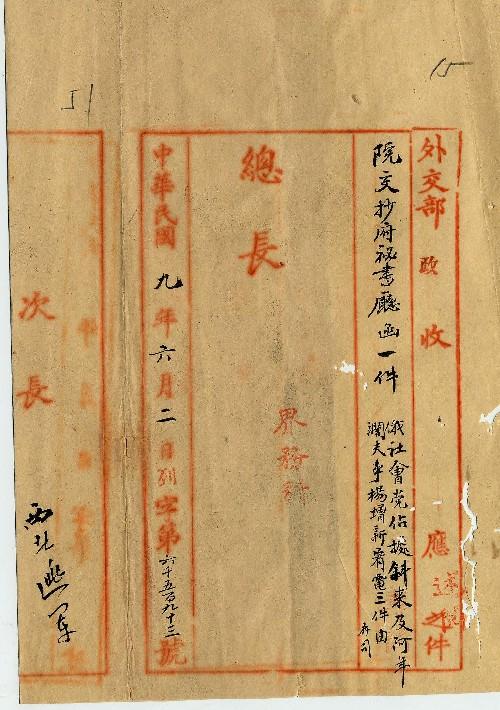 15
51
外交部 政 收 應 之件
院交抄府祕書廳函一件
俄社會党佔據斜米及阿年
瀾夫事楊增新肴電三件由
存司
總長
界務科
中華民國九年六月二日列字第六千五百九十三號
次長
西北